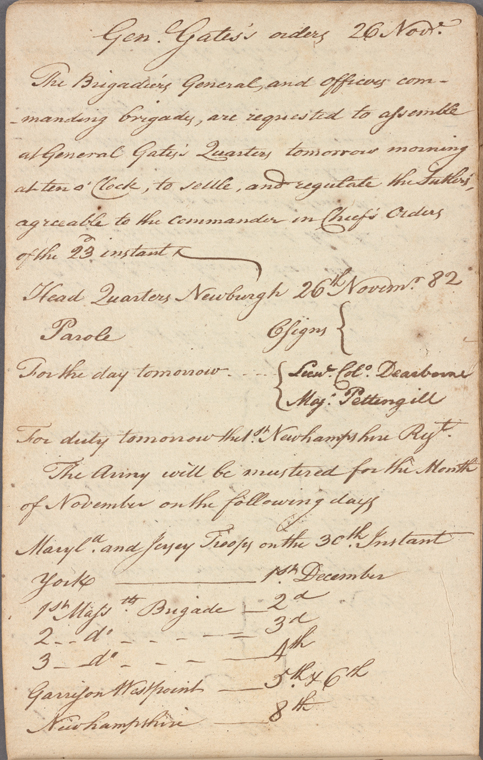 Gen.l Gates's orders 26 Nov.r
The Brigadiers General, and officers com-
-manding brigades, are requested to assemble
at General Gates's Quarters tomorrow morning
at ten o'Clock, to settle, and regulate the Sutlers,
agreeable to the commander in Chief's Orders
of the 23d instant
Head Quarters Newburgh 26th Novem.r 82
Parole CSigns {
For the day tomorrow - - - { Lieut. Col.o Dearborne
Maj.r Pettengill
For duty tomorrow the 1st Newhampshire Reg.t
The Army will be mustered for the Month
of November on the following days
Maryl.d and Jersey Troops on the 30th Instant
York — 1st December
1st Mass.tts Brigade — 2d
2 - - do - - - - = 3d
3 - - do - - - - — 4th
Garrison Westpoint — 5th & 6th
Newhampshire — 8th